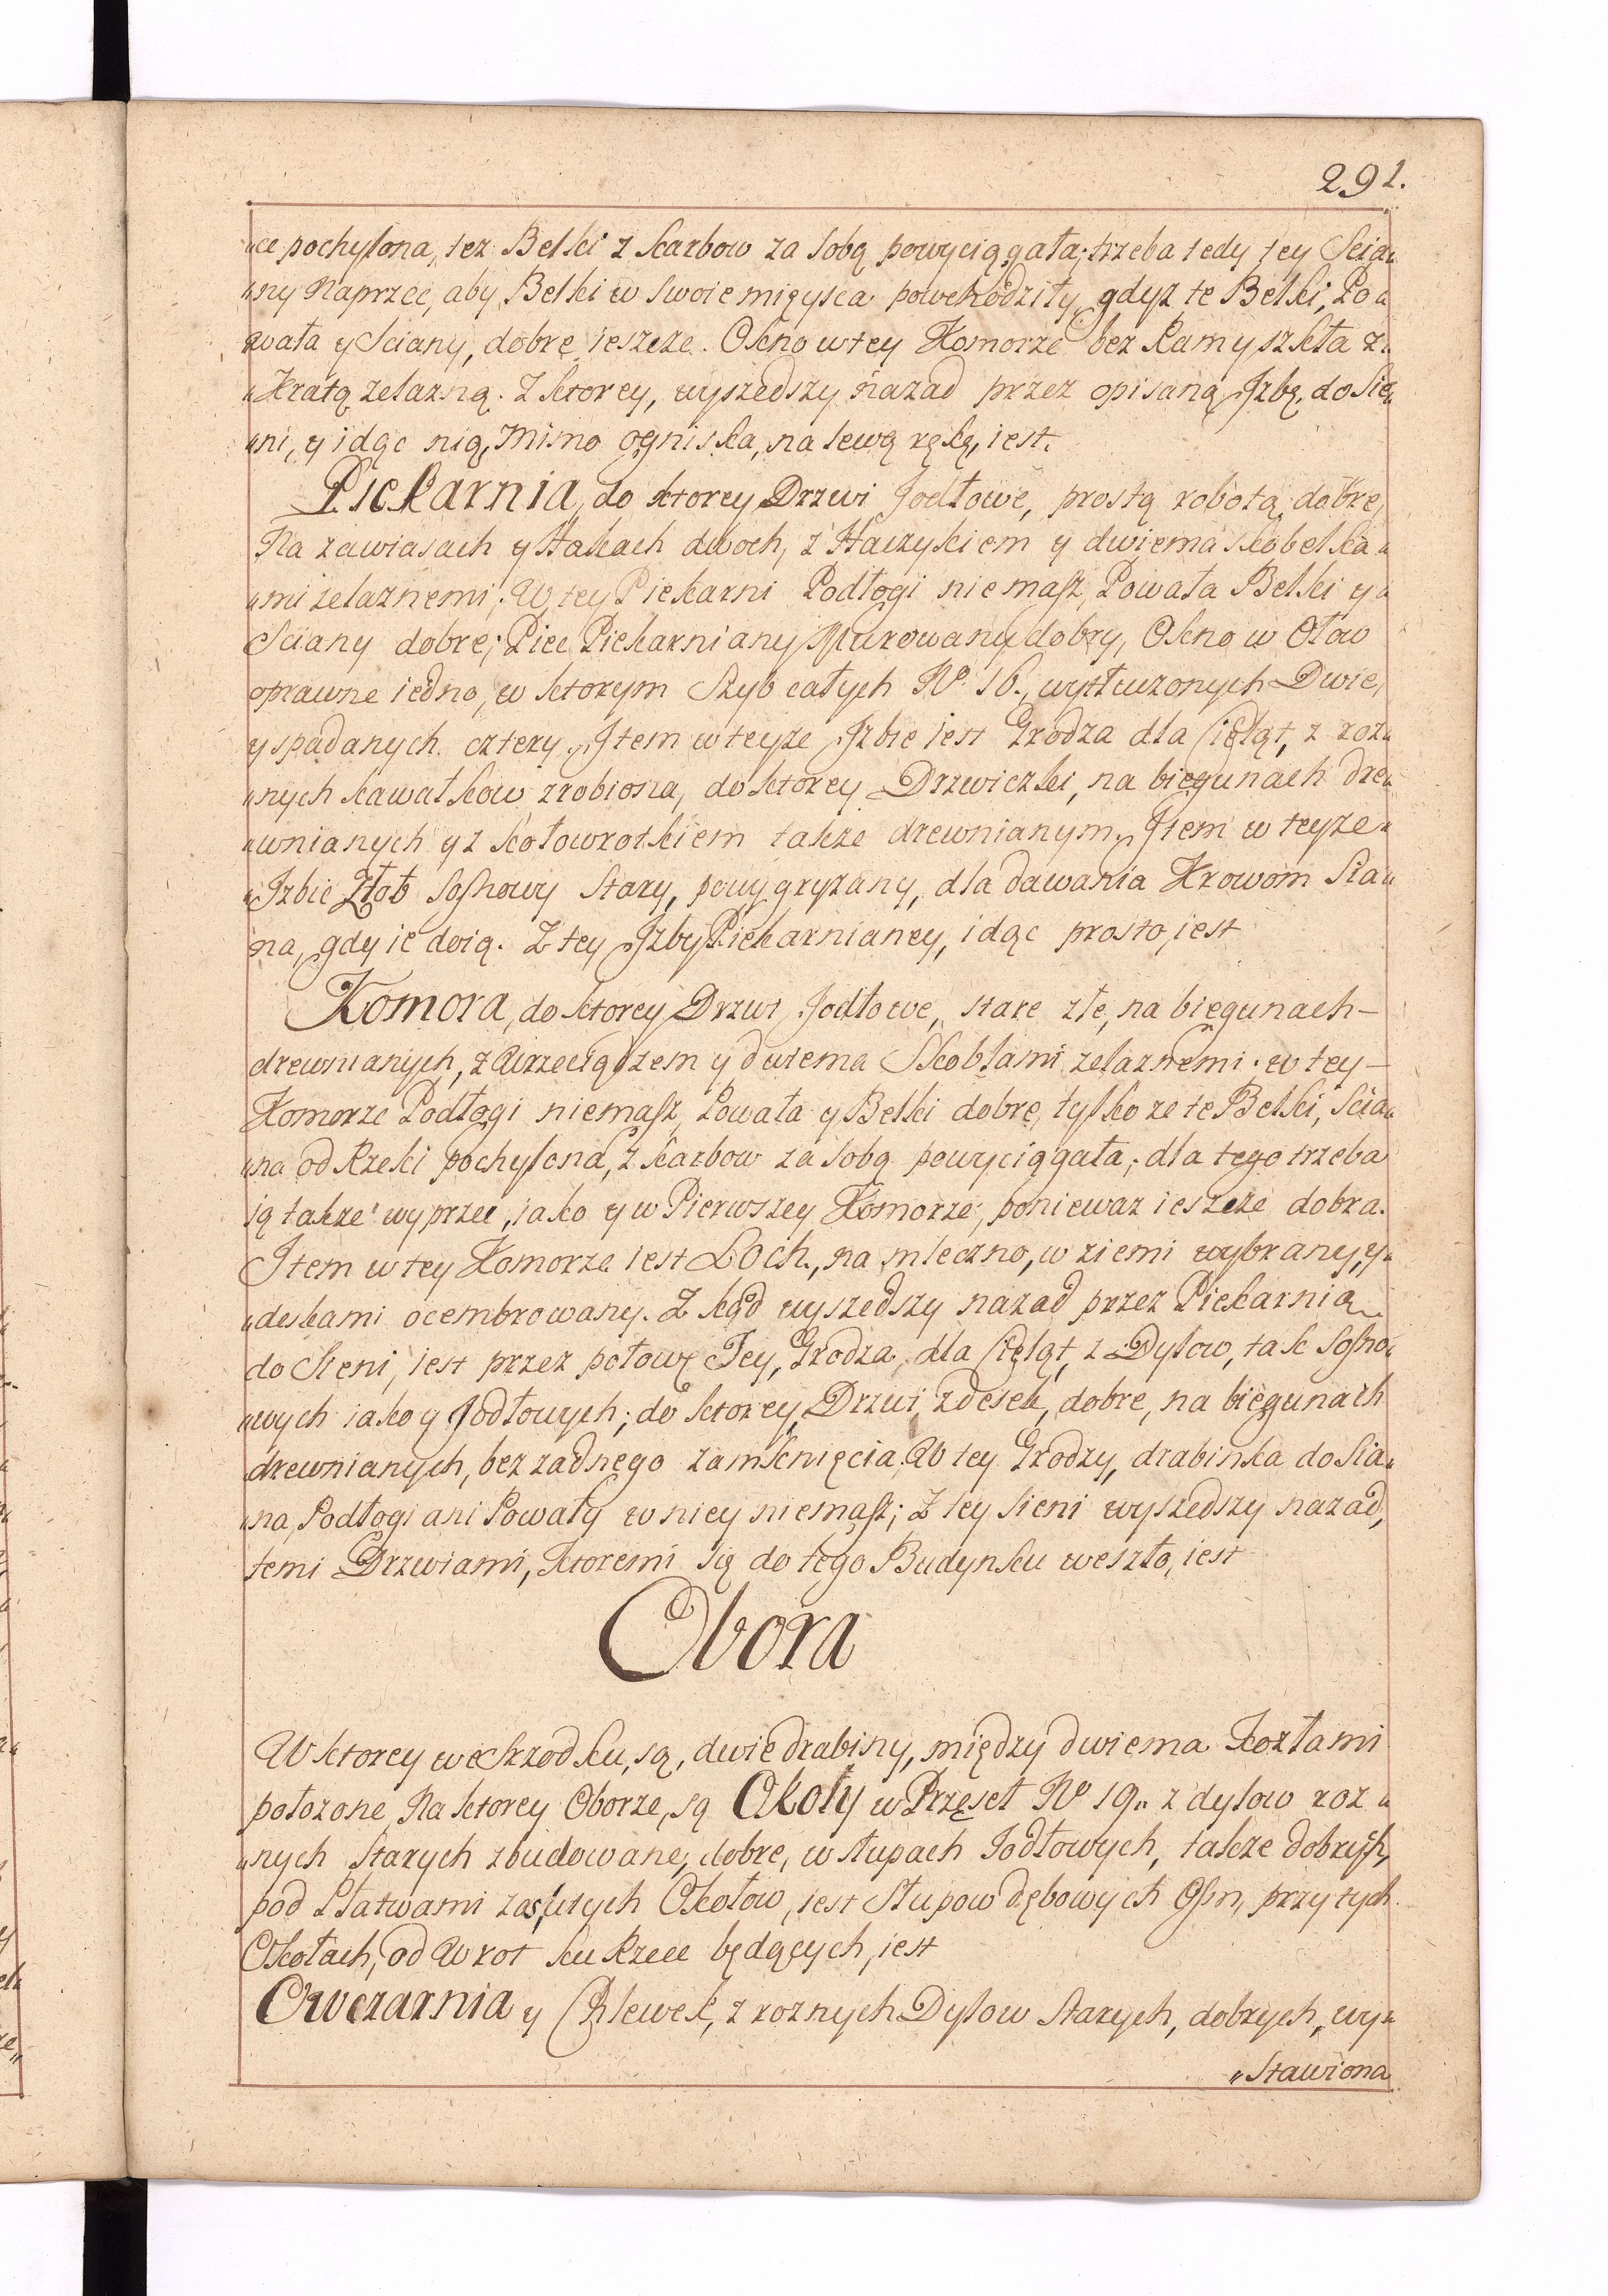 291.
„ce pochylona, też Belki z karbow za sobą powyciąggała; trzeba tedy tey Scia„
„ny Naprzec, aby Belki w swoie mięysca powchodziły, gdyz te Belki, Po„
wała y Sciany, dobre ieszcze. Okno w tey Komorze bez Ram y szkła z„
„Kratą zelazną. Z ktorey, wyszedszy nazad przez opisaną Izbę, do Sie„
„ni, y idąc nią, mimo ogniska, na lewą rękę, iest.
Piekarnia, do ktorey Drzwi Jodłowe, prostą robotą, dobre,
Na zawiasach y Hakach dwoch, z Haczykiem y dwiema skobelka„
„mi zelaznemi; W tey Piekarni Podłogi niemasz, Powała Belki y„
Sciany dobre; Piec Piekarniany Murowany dobry, Okno w Ołow
oprawne iedno, w ktorym Szyb całych No 16., wytłuczonych Dwie,
y spadanych cztery, Item w teyze Izbie iest Grodza dla Cieląt, z roz„
„nych kawałkow zrobiona, do ktorey Drzwiczki, na biegunach dre„
„wnianych y z kołowrotkiem takze drewnianym, Item w teyze„
„Izbie Złob Sosnowy Stary, powygryzany, dla dawania Krowom Sia„
na, gdy ie doią. Z tey Izby Piekarnianey, idąc prosto, iest
Komora, do ktorey Drzwi Jodłowe, stare złe, na biegunach–
drewnianych, z Wrzeciądzem y dwiema Skoblami zelaznemi. w tey–
Komorze Podłogi niemasz, Powała y Belki dobre, tylko ze te Belki, Scia„
„na od Rzeki pochylona, z karbow za sobą powyciąggała; dla tego trzeba
ią takze wyprzec, iako y w Pierwszey Komorze, poniewaz ieszcze dobra.
Item w tey Komorze iest Loch, na mleczno, w ziemi wybrany, y„
„deskami ocembrowany. Z kąd wyszedszy nazad przez Piekarnią
do Sieni, iest przez połowę Tey, Grodza, dla Cieląt, z Dylow, tak Sosno„
„wych iako y Jodłowych; do ktorey Drzwi z desek, dobre, na biegunach
drewnianych, bez zadnego zamknięcia. W tey Grodzy, drabinka do Sia„
„na, Podłogi ani Powały w niey niemasz; Z tey Sieni wyszedszy nazad,
temi Drzwiami, ktoremi się do tego Budynku weszło, iest
Obora
W ktorey we srzodku, są, dwie drabiny, między dwiema Kozłami
położone, Na ktorey Oborze, są Okoły w Przęseł No 19„ z dylow roz„
„nych Starych zbudowane, dobre, w słupach Jodłowych, takze dobrych,
pod Płatwami zas, tych Okołow, iest Słupow dębowych Osm, przy tych
Okołach, od Wrot ku Rzece będących, iest
Owczarnia y Chlewek, z roznych Dylow Starych, dobrych, wy„
„Stawiona